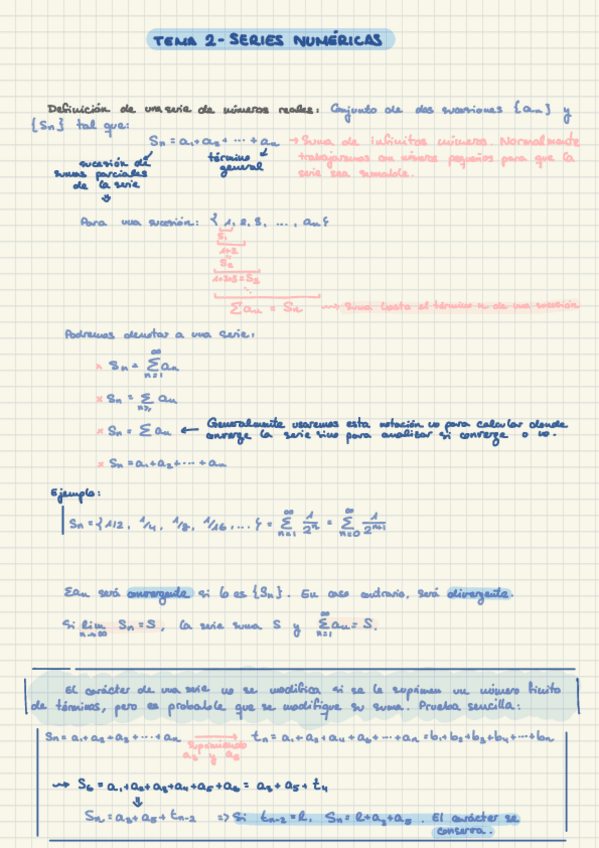 TEMA 2 - SERIES NUMÉRICAS
Definición de una serie de números reales: Conjunto de dos sucesiones {an} y
{Sn} tal que:
Sn = a1+a2+ ··· +an → Suma de infinitos números. Normalmente
trabajaremos con números pequeños para que la
serie sea sumable.
sucesión de
sumas parciales
de la serie
término
general
Para una sucesión: {1, 2, 3, ..., an}
S1
1+2
S2
1+2+3=S3
Σan = Sn → Suma hasta el término n de una sucesión
Podremos denotar a una serie:
× Sn = Σ an
n=1
∞
× Sn = Σ an
× Sn = Σ an ← Generalmente usaremos esta notación no para calcular donde
converge la serie sino para analizar si converge o no.
× Sn = a1+a2+ ··· +an
Ejemplo:
Sn = {1/2, 1/4, 1/8, 1/16, ...} = Σ 1/2^n = Σ 1/2^(n+1)
∞ ∞
n=1 n=0
Σan será convergente si lo es {Sn}. En caso contrario, será divergente.
Si lim Sn = S, la serie suma S y Σ an = S.
n→∞ n=1 ∞
El carácter de una serie no se modifica si se le suprimen un número finito
de términos, pero es probable que se modifique su suma. Prueba sencilla:
Sn = a1+a2+a3+ ··· +an → tn = a1+a2+a4+a6+ ··· +an = b1+b2+b3+b4+ ··· +bn
Suprimiendo
a3 y a5
→ S6 = a1+a2+a3+a4+a5+a6 = a3+a5+t4
Sn = a3+a5+tn-2 => Si tn-2 = l, Sn = l+a3+a5. El carácter se
conserva.